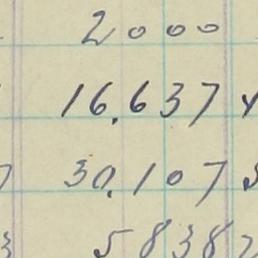 2000
16.637
30.107
5838